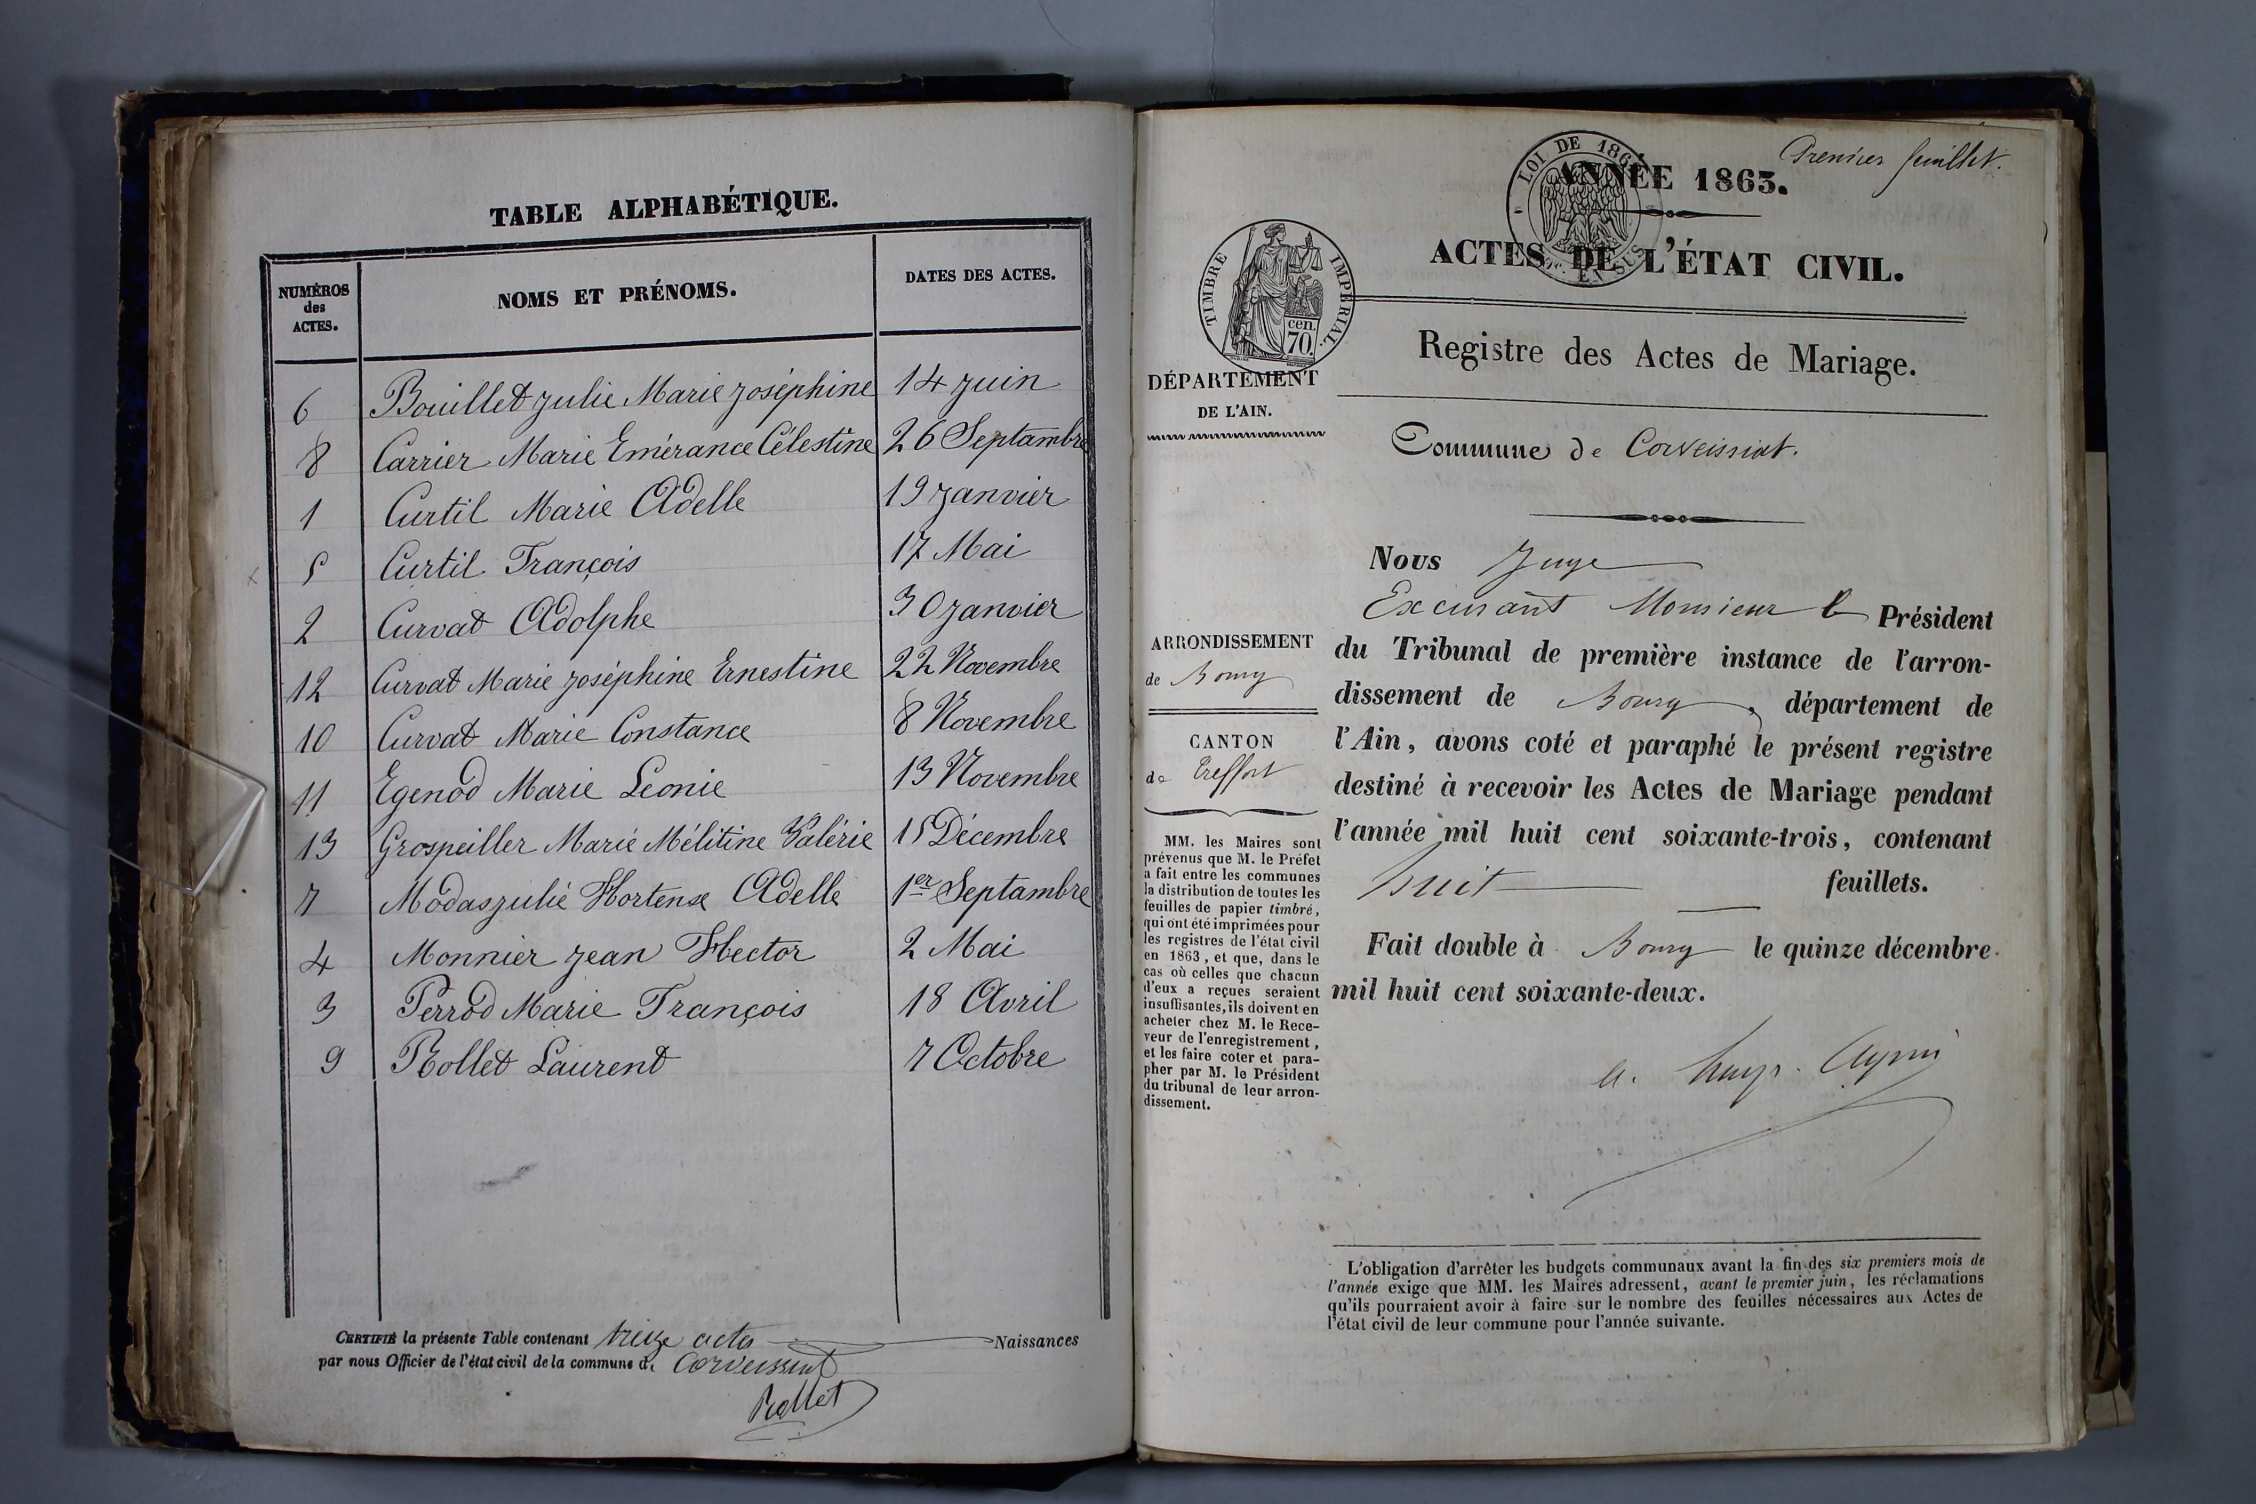 TABLE ALPHABÉTIQUE.
NUMÉROS des ACTES. NOMS ET PRÉNOMS. DATES DES ACTES.
6 Bouillet Julie Marie Joséphine 14 Juin
8 Carrier Marie Emérance Célestine 26 Septambre
1 Curtil Marie Adelle 19 Janvier
5 Curtil François 17 Mai
2 Curvat Adolphe 30 Janvier
12 Curvat Marie Joséphine Ernestine 22 Novembre
10 Curvat Marie Constance 8 Novembre
11 Egenod Marie Leonie 13 Novembre
13 Grospeiller Marie Mélitine Valérie 15 Décembre
7 Modas Julie Hortense Adelle 1er Septambre
4 Monnier Jean Hector 2 Mai
3 Perrod Marie François 18 Avril
9 Rollet Laurent 7 Octobre
CERTIFIÉ la présente Table contenant treize actes Naissances
par nous Officier de l'état civil de la commune de Corveissiat
Rollet
Premier feuillet.
LOI DE 1862
EN SUS
ANNÉE 1863.
ACTES DE L'ÉTAT CIVIL.
TIMBRE IMPERIAL.
cen.
70.
Registre des Actes de Mariage.
DÉPARTEMENT
DE L'AIN.
Commune de Corveissiat.
ARRONDISSEMENT
de Bourg
CANTON
de Treffort
MM. les Maires sont
prévenus que M. le Préfet
a fait entre les communes
la distribution de toutes les
feuilles de papier timbré,
qui ont été imprimées pour
les registres de l'état civil
en 1863, et que, dans le
cas où celles que chacun
d'eux a reçues seraient
insuffisantes, ils doivent en
acheter chez M. le Rece-
veur de l'enregistrement,
et les faire coter et para-
pher par M. le Président
du tribunal de leur arron-
dissement.
Nous Juge
Excusant Monsieur le Président
du Tribunal de première instance de l'arron-
dissement de Bourg, département de
l'Ain, avons coté et paraphé le présent registre
destiné à recevoir les Actes de Mariage pendant
l'année mil huit cent soixante-trois, contenant
huit feuillets.
Fait double à Bourg le quinze décembre
mil huit cent soixante-deux.
L'obligation d'arrêter les budgets communaux avant la fin des six premiers mois de
l'année exige que MM. les Maires adressent, avant le premier juin, les réclamations
qu'ils pourraient avoir à faire sur le nombre des feuilles nécessaires aux Actes de
l'état civil de leur commune pour l'année suivante.